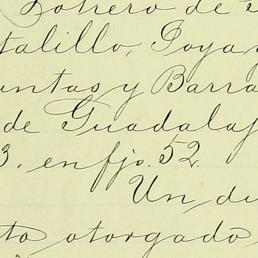 Potrero de
talillo, Joya
untas y Barra
de Guadalaj
3. en fjo. 52.
Un du
to otorgado